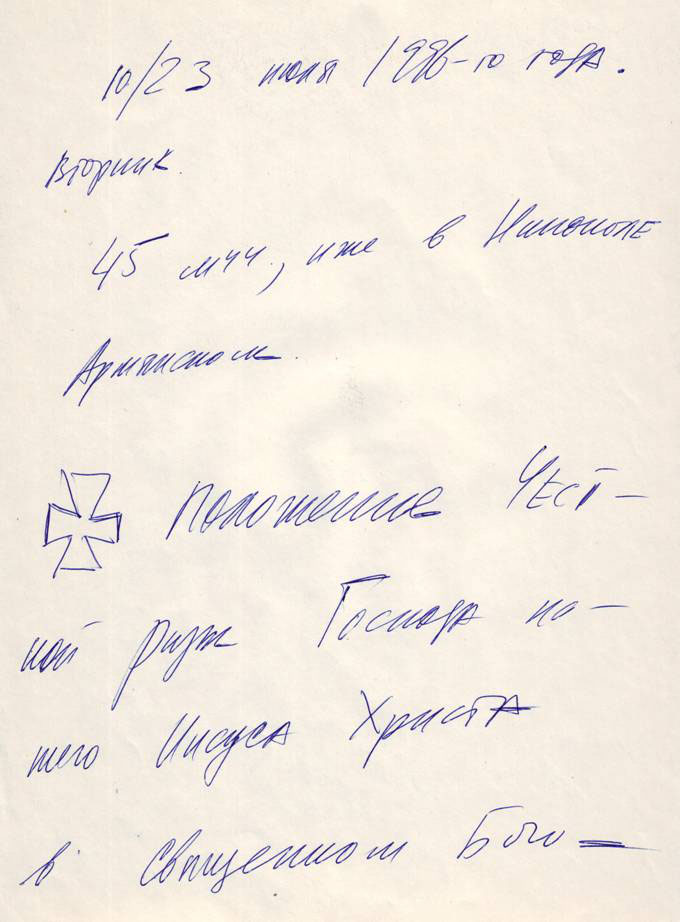 10/23 июля 1996-го года.
Вторник.
45 мчч., иже в Никополе
Армянском.
Положение Чест-
ной ризы Господа на-
шего Иисуса Христа
в священном Бого-